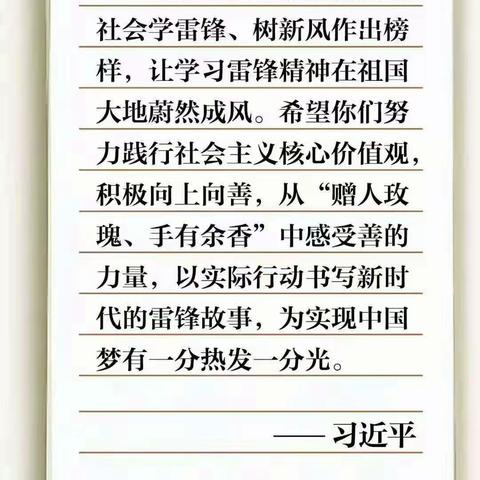 社会学雷锋、树新风作出榜
样，让学习雷锋精神在祖国
大地蔚然成风。希望你们努
力践行社会主义核心价值观，
积极向上向善，从“赠人玫
瑰、手有余香”中感受善的
力量，以实际行动书写新时
代的雷锋故事，为实现中国
梦有一分热发一分光。
—— 习近平